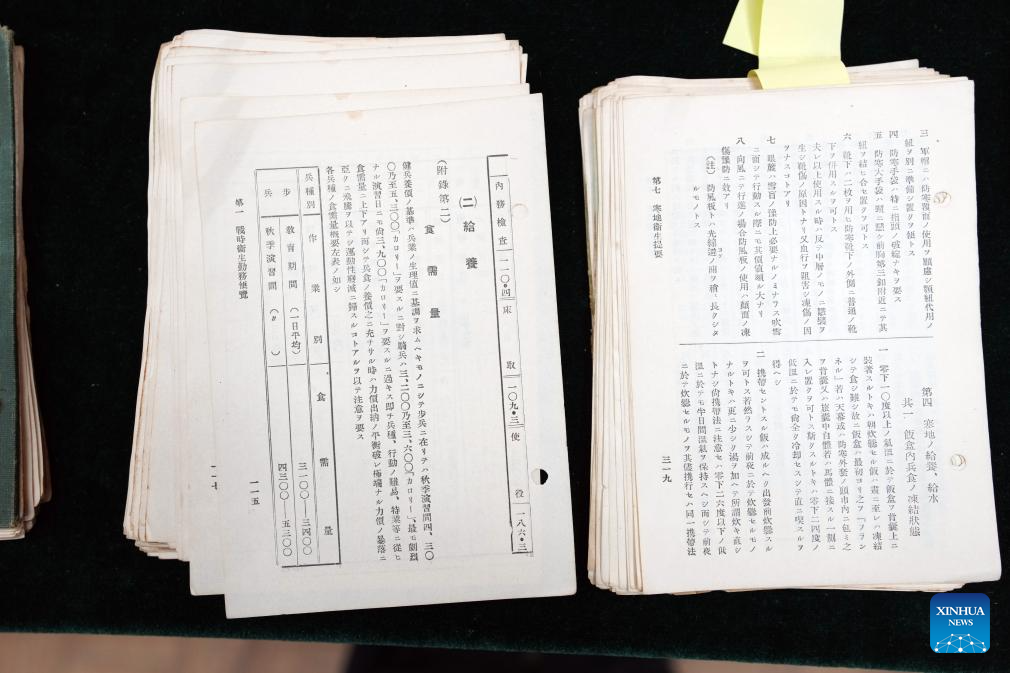 内務檢査 一一〇・四 床 取 一〇九・三 使 役 一八六・三
㈡ 給養
(附錄第二) 食需量
健兵養價ノ基準ハ兵業ノ生理値ニ基調ヲ求ムヘキモノニシテ步兵ニ在リテハ秋季演習間四、三〇
〇乃至五、三〇〇「カロリー」ヲ要スルニ對シ騎兵ハ三、二〇〇乃至三、六〇〇「カロリー」、最モ劇烈
ナル演習日ニモ尙三、九〇〇「カロリー」ヲ要スルニ過キス卽チ兵種、行動ノ難易、特業等ニ從ヒ
食需量ニ上下アリ而シテ兵食ノ養價之ニ充テサル時ハ力價出納ノ平衡破レ極端ナル力價ノ暴落ニ
亞クニ飛騰ヲ以テシ運動性廢滅ニ歸スルコトアルヲ以テ注意ヲ要ス
各兵種ノ食需量概要左表ノ如シ
兵種別 作業別 食需量
步兵 敎育期間 (一日平均) 三一〇〇—三四〇〇
秋季演習間 (〃) 四三〇〇—五三〇〇
第一 戰時衞生勤務便覽
一一五
三 軍帽ニハ防寒覆面ノ使用ヲ顧慮シ顎紐代用ノ
紐ヲ別ニ準備シ置クヲ可トス
四 防寒手袋ハ特ニ指頭ノ破綻ナキヲ要ス
五 防寒大手袋ハ頸ニ懸ケ前胸第三釦附近ニテ其
紐ヲ結ヒ合セ置クヲ可トス
六 靴下ハ二枚ヲ用ヒ防寒靴下ノ外側ニ普通ノ靴
下ヲ倂用スルヲ可トス
夫レ以上使用スル時ハ反テ中層ノモノニ皺襞ヲ
生シ靴傷ノ原因トナリ又血行ヲ阻害シ凍傷ノ因
ヲナスコトアリ
七 眼簾ハ雪盲ノ豫防上必要ナルノミナラス吹雪
ニ面シテ行動スル際ニモ其價値頗ル大ナリ
八 向風ニテ行進ノ場合防風板ノ使用ハ顏面ノ凍
傷豫防ニ效アリ
(注) 防風板トハ
ルモノトス
第七 寒地衞生提要
第四 寒地ノ給養、給水
其一 飯盒內兵食ノ凍結狀態
一 零下一〇度以上ノ氣溫ニ於テ飯盒ヲ背囊上ニ
裝著スルトキハ朝炊爨セル飯ハ晝ニ至レハ凍結
シテ食シ難シ故ニ飯盒ハ最初ヨリ之ヲ「フラン
ネル」若ハ天幕或ハ防寒外套ノ頭巾內ニ包ミ之
ヲ背囊又ハ旅囊中自體若ハ馬體ニ接スル一側ニ
入レ置クヲ可トス斯クスルトキハ零下二四度ノ
低溫ニ於テモ尙全ク冷却セスシテ直ニ喫スルヲ
得ヘシ
二 携帶セントスル飯ハ成ルヘク出發前炊爨スル
ヲ可トス若然ラスシテ前夜ニ於テ炊爨セルモノ
ナルトキハ更ニ少シク湯ヲ加ヘテ所謂炊キ直シ
トナシ尙携帶法ニ注意セハ零下二六度以下ノ低
溫ニ於テモ半日間溫氣ヲ保持スヘシ而シテ前夜
ニ於テ炊爨セルモノヲ其儘携行セハ同一携帶法
三一九
XINHUA
NEWS